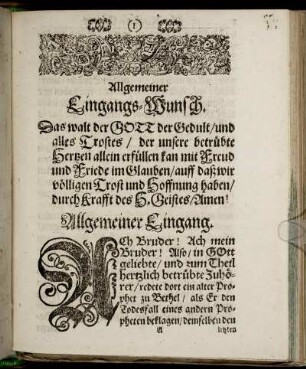 (1)
Allgemeiner
Eingangs-Wunsch.
Das walt der GOTT der Gedult/und
alles Trostes / der unsere betrübte
Hertzen allein erfüllen kan mit Freud
und Friede im Glauben/auff daß wir
völligen Trost und Hoffnung haben/
durch Krafft des H. Geistes/Amen!
Allgemeiner Eingang.
ACh Bruder! Ach mein
Bruder! Also/ in GOtt
geliebte/ und zum Theil
hertzlich betrübte Zuhö-
rer/ redete dort ein alter Pro-
phet zu Bethel/ als Er den
Todesfall eines andern Pro-
pheten beklagen/ demselben den
A letzten